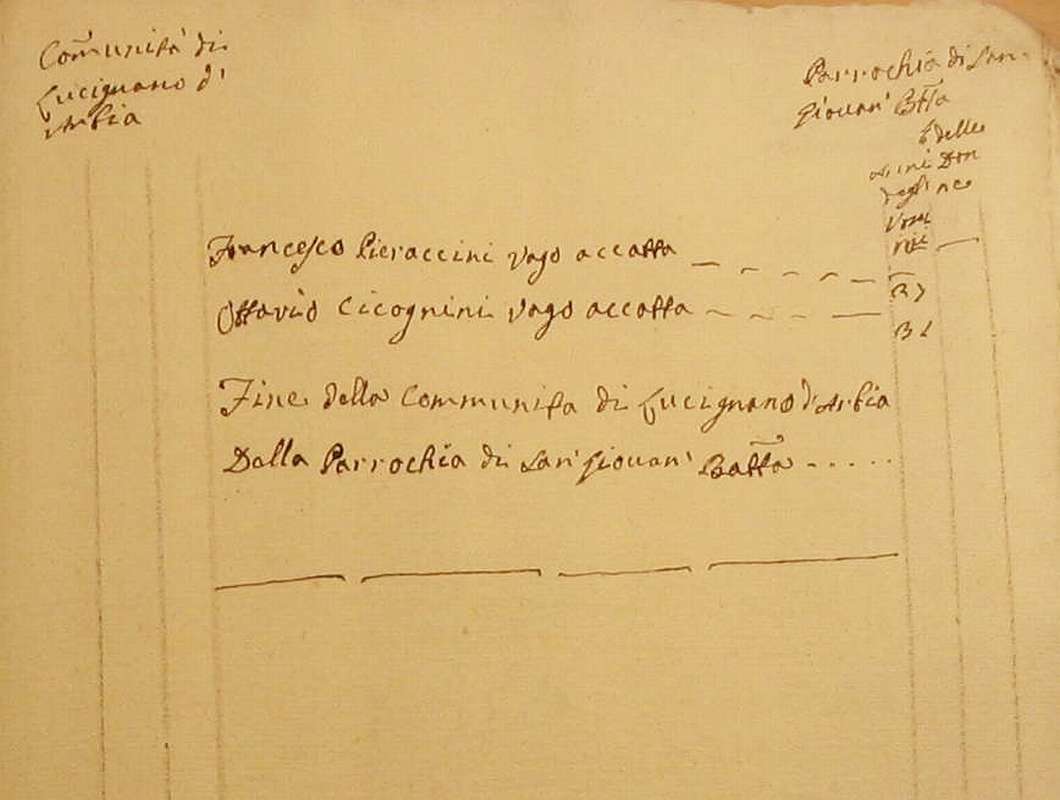 Com̃unità di
Lucignano d'
Arbia
Parrochia di San
Giovan' Bt̃ta
delle
Don
degl' ne
Francesco Pieraccini Vago accatta
37
Ottavio Cicognini Vago accatta
31
Fine della Communita di Lucignano d'Arbia
Della Parrochia di San' Giovan' Batt̃a .....